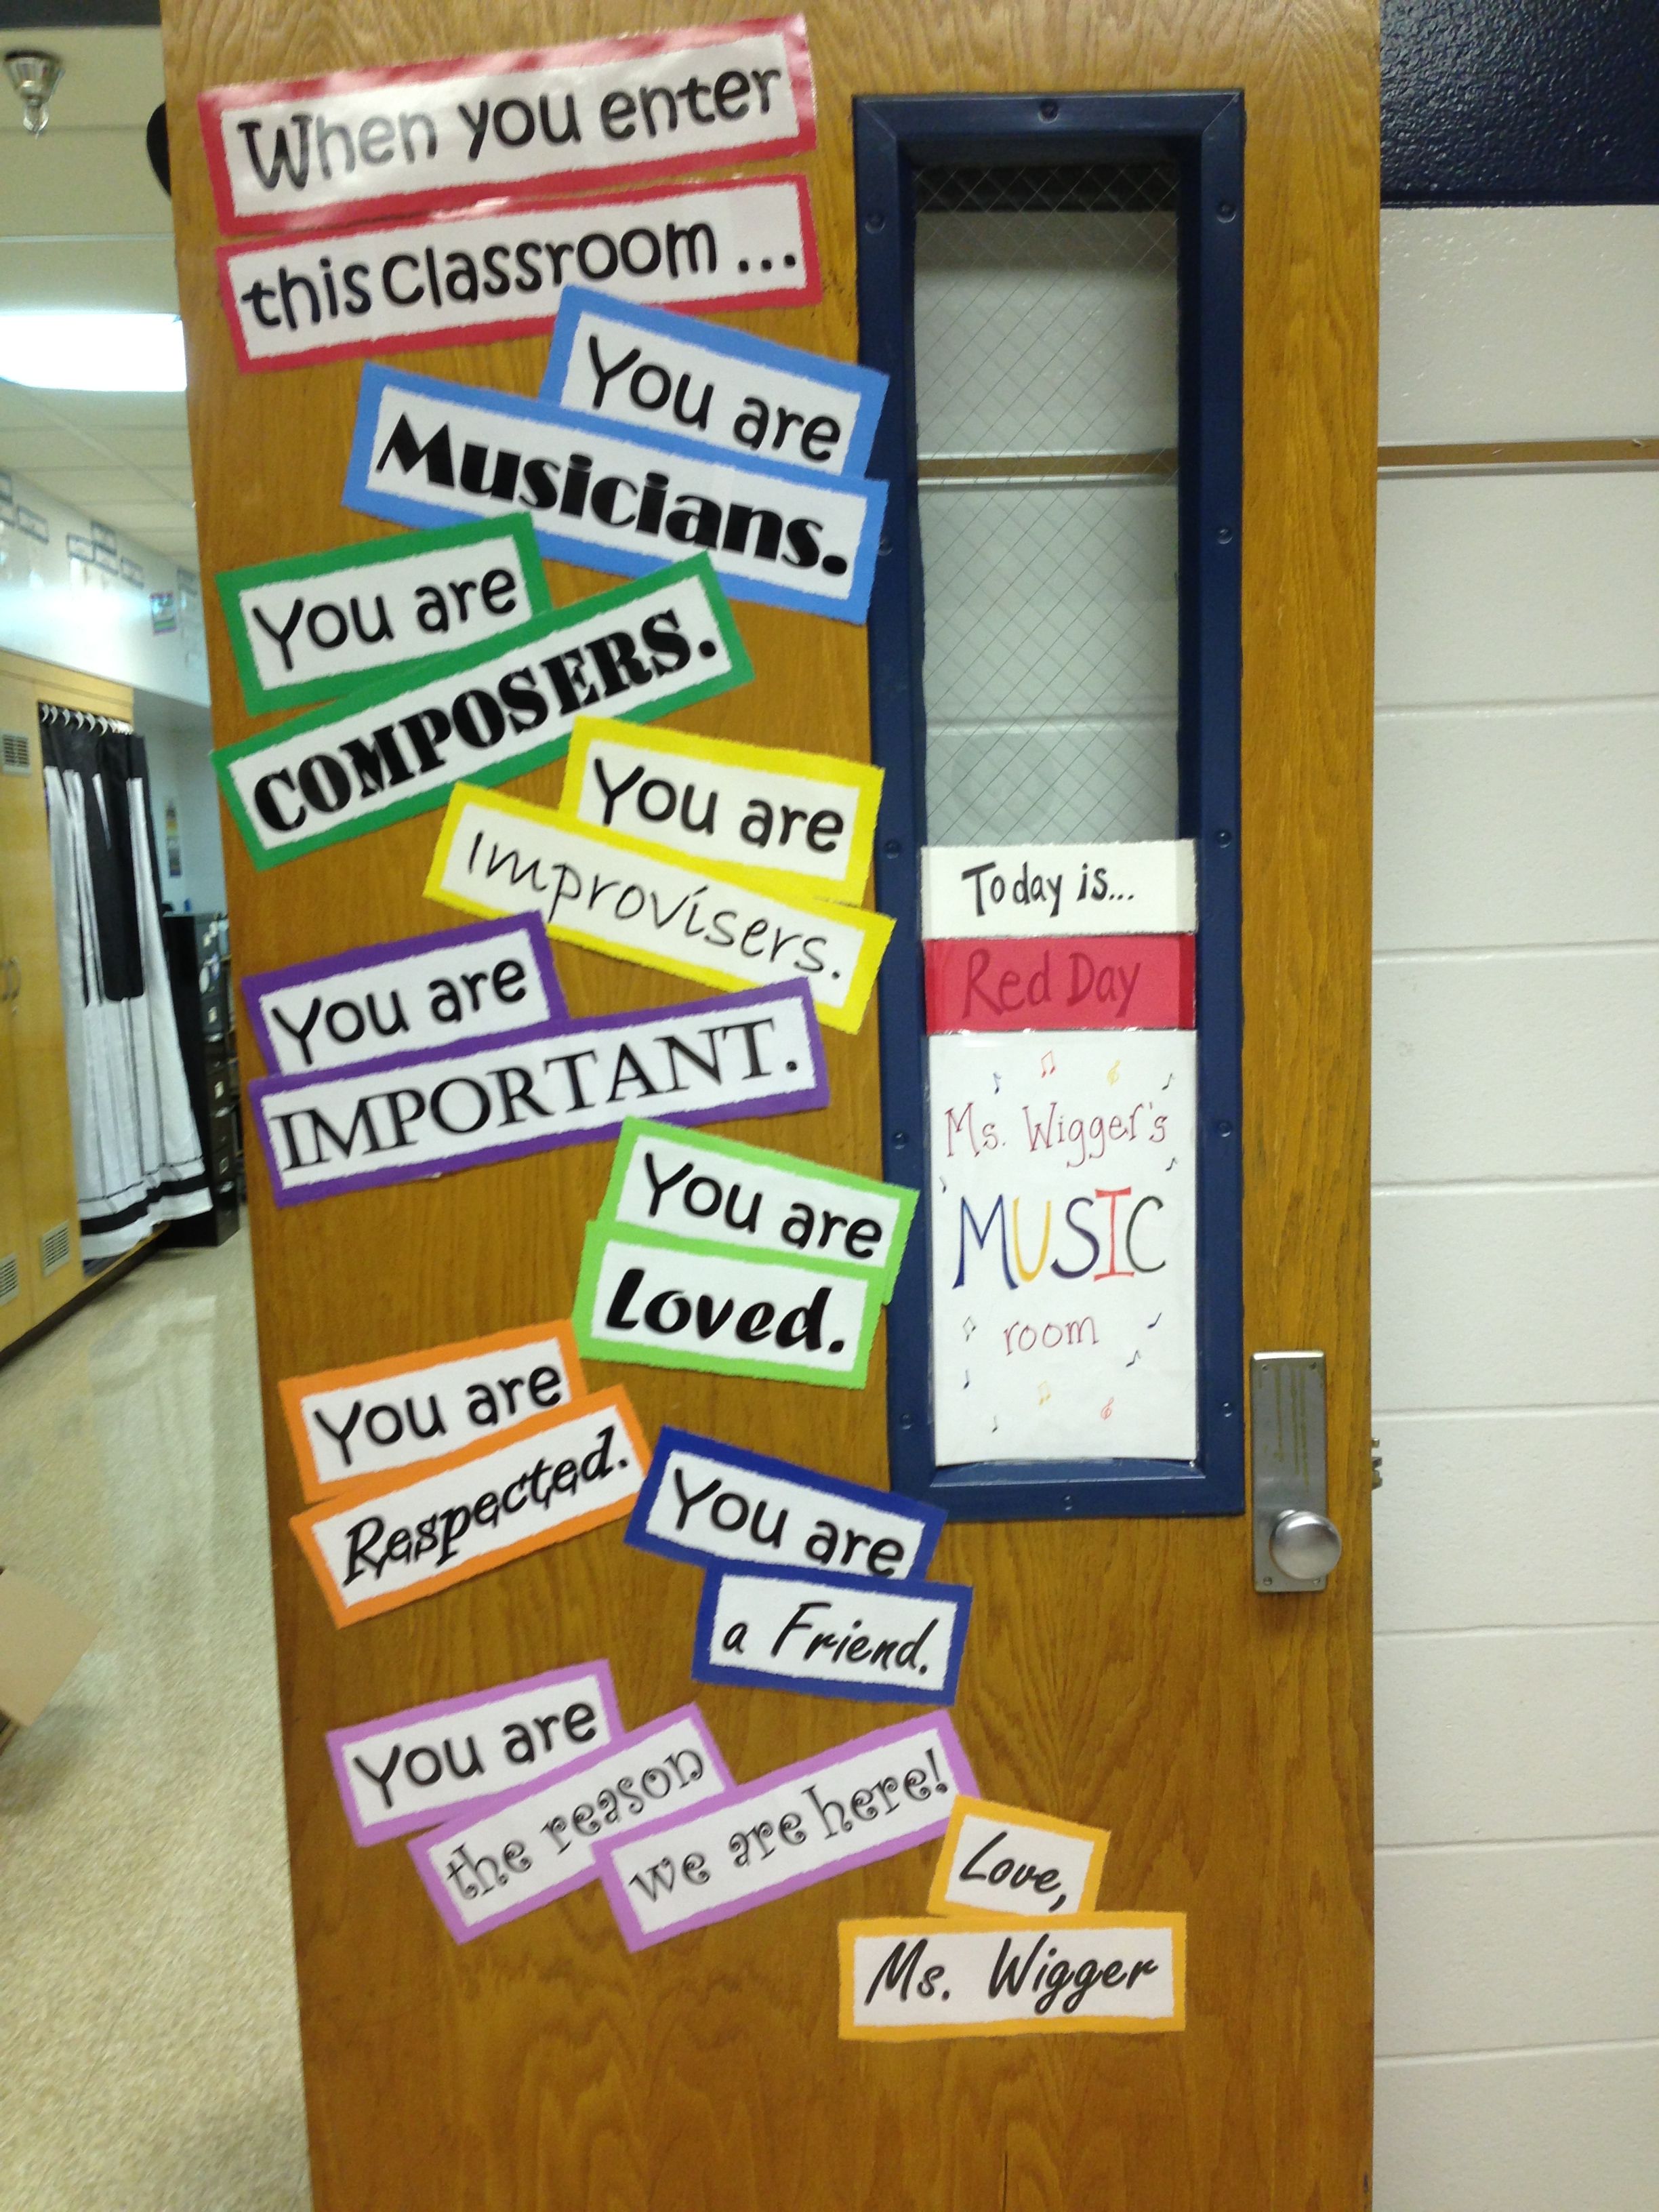 When you enter
this classroom ...
You are
Musicians.
You are
COMPOSERS.
You are
Improvisers.
You are
IMPORTANT.
You are
Loved.
You are
Respected.
You are
a Friend.
You are
the reason
we are here!
Love,
Ms. Wigger
Today is...
Red Day
Ms. Wigger's
MUSIC
room